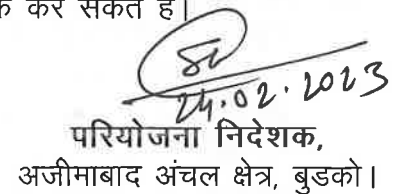 क कर सकते हैं।
24.02.2023
परियोजना निदेशक,
अजीमाबाद अंचल क्षेत्र, बुडको।